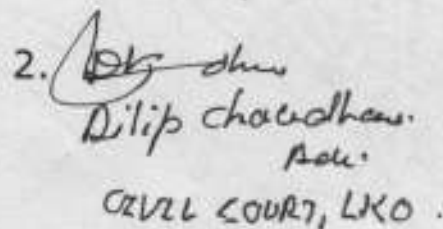 2.
Dilip Chaudhary.
Adv.
CIVIL COURT, LKO.